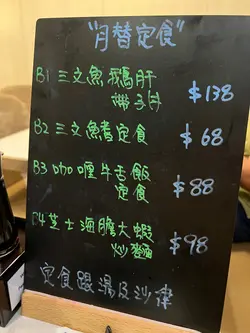 "月替定食"
B1 三文魚鵝肝
帶子丼 $138
B2 三文魚煮定食 $68
B3 咖喱牛舌飯
定食 $88
B4 芝士海膽大蝦
炒 $98
定食跟湯及沙律